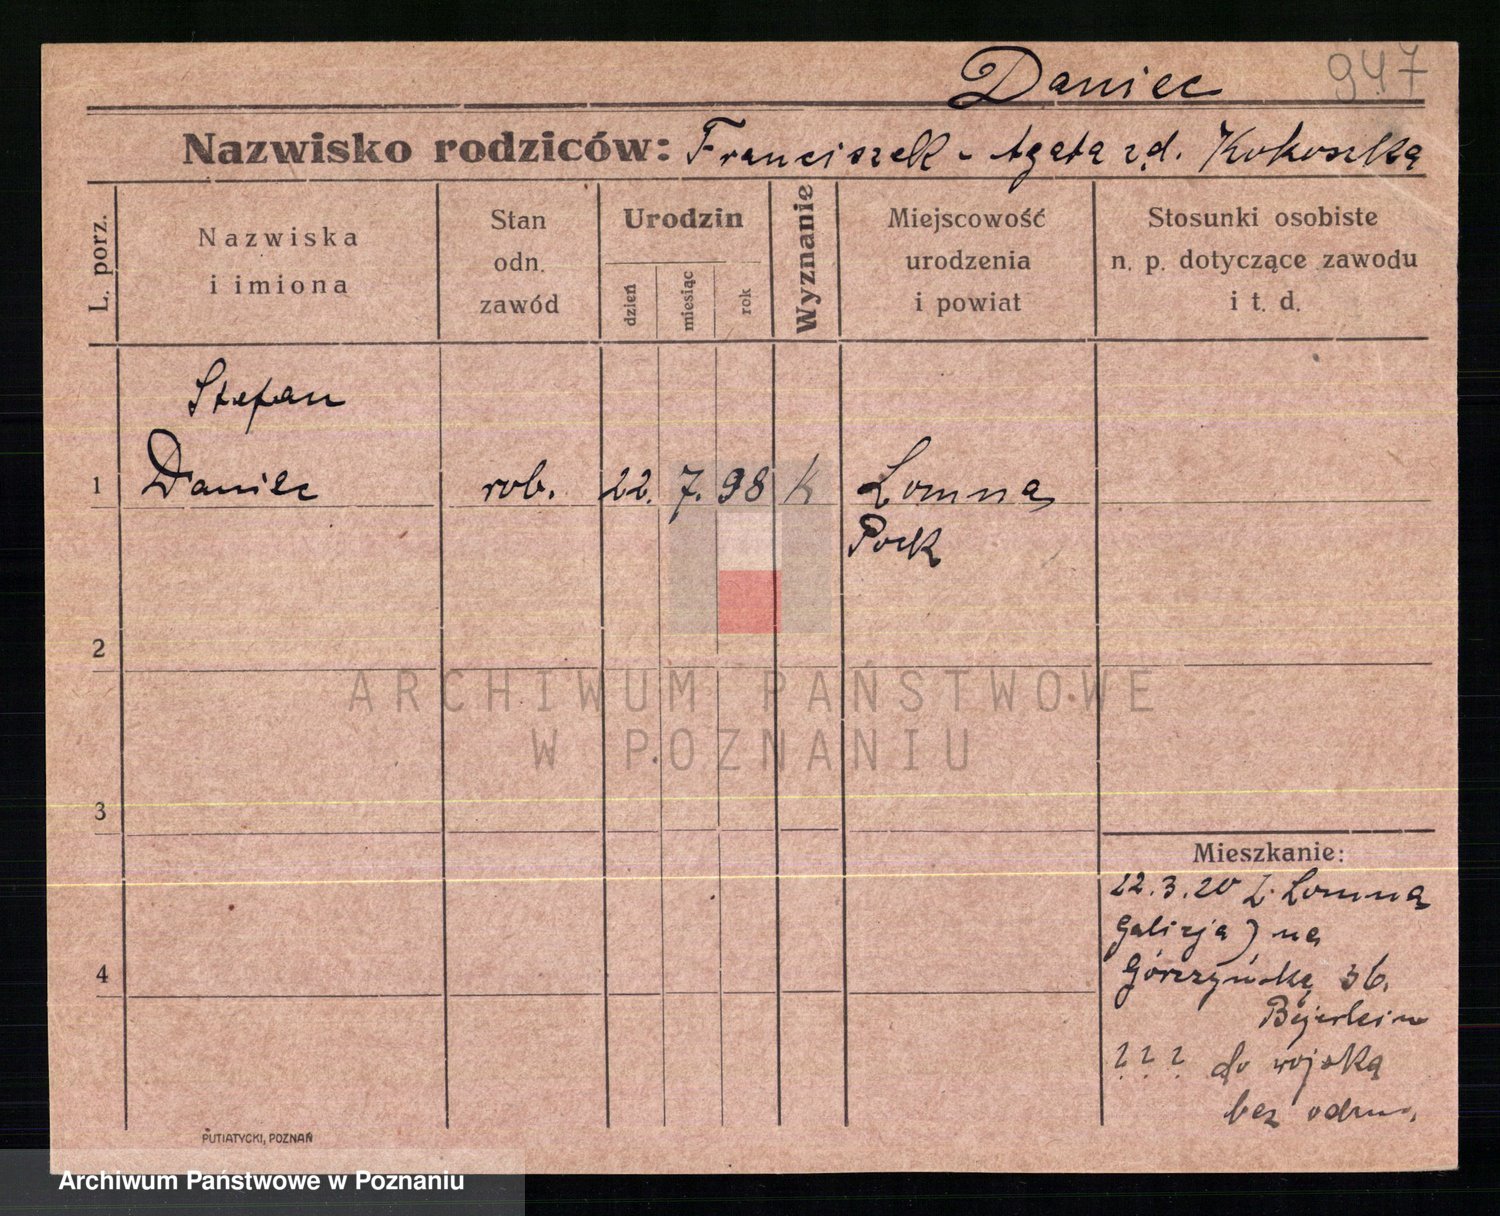 Daniec 947
Nazwisko rodziców: Franciszek - Agata zd. Kokoszka
L. porz.
Nazwiska
i imiona
Stan
odn.
zawód
Urodzin
dzień
miesiąc
rok
Wyznanie
Miejscowość
urodzenia
i powiat
Stosunki osobiste
n. p. dotyczące zawodu
i t. d.
Stefan
1 Daniec rob. 22. 7. 98 k Lomna
2
3
4
Mieszkanie:
22.3.20 z Lomna
Galizja) na
Górczyńską 36.
? ? ? do wojska
bez
PUTIATYCKI, POZNAŃ
ARCHIWUM PAŃSTWOWE
W POZNANIU
Archiwum Państwowe w Poznaniu